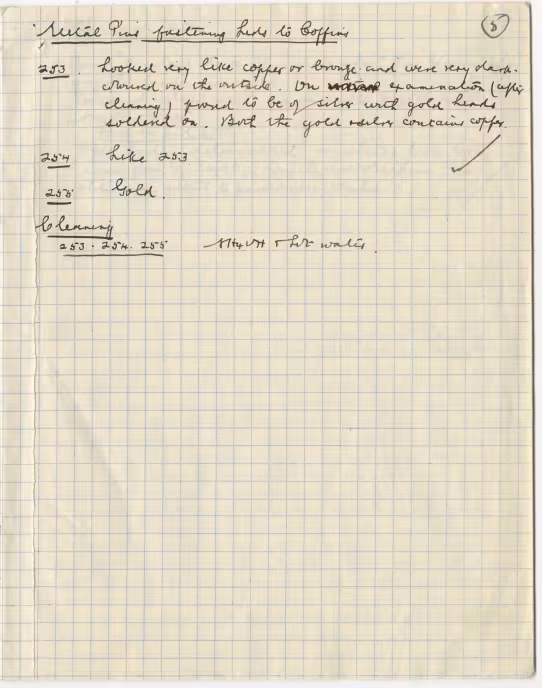 8
Metal Pins fastening Lids to Coffins
253. Looked very like copper or bronze and were very dark
coloured on the outside. On examination (after
cleaning) proved to be of silver with gold heads
soldered on. Both the gold & silver contains copper.
254 Like 253
255 Gold.
Cleaning
253. 254. 255 NH4OH & hot water.